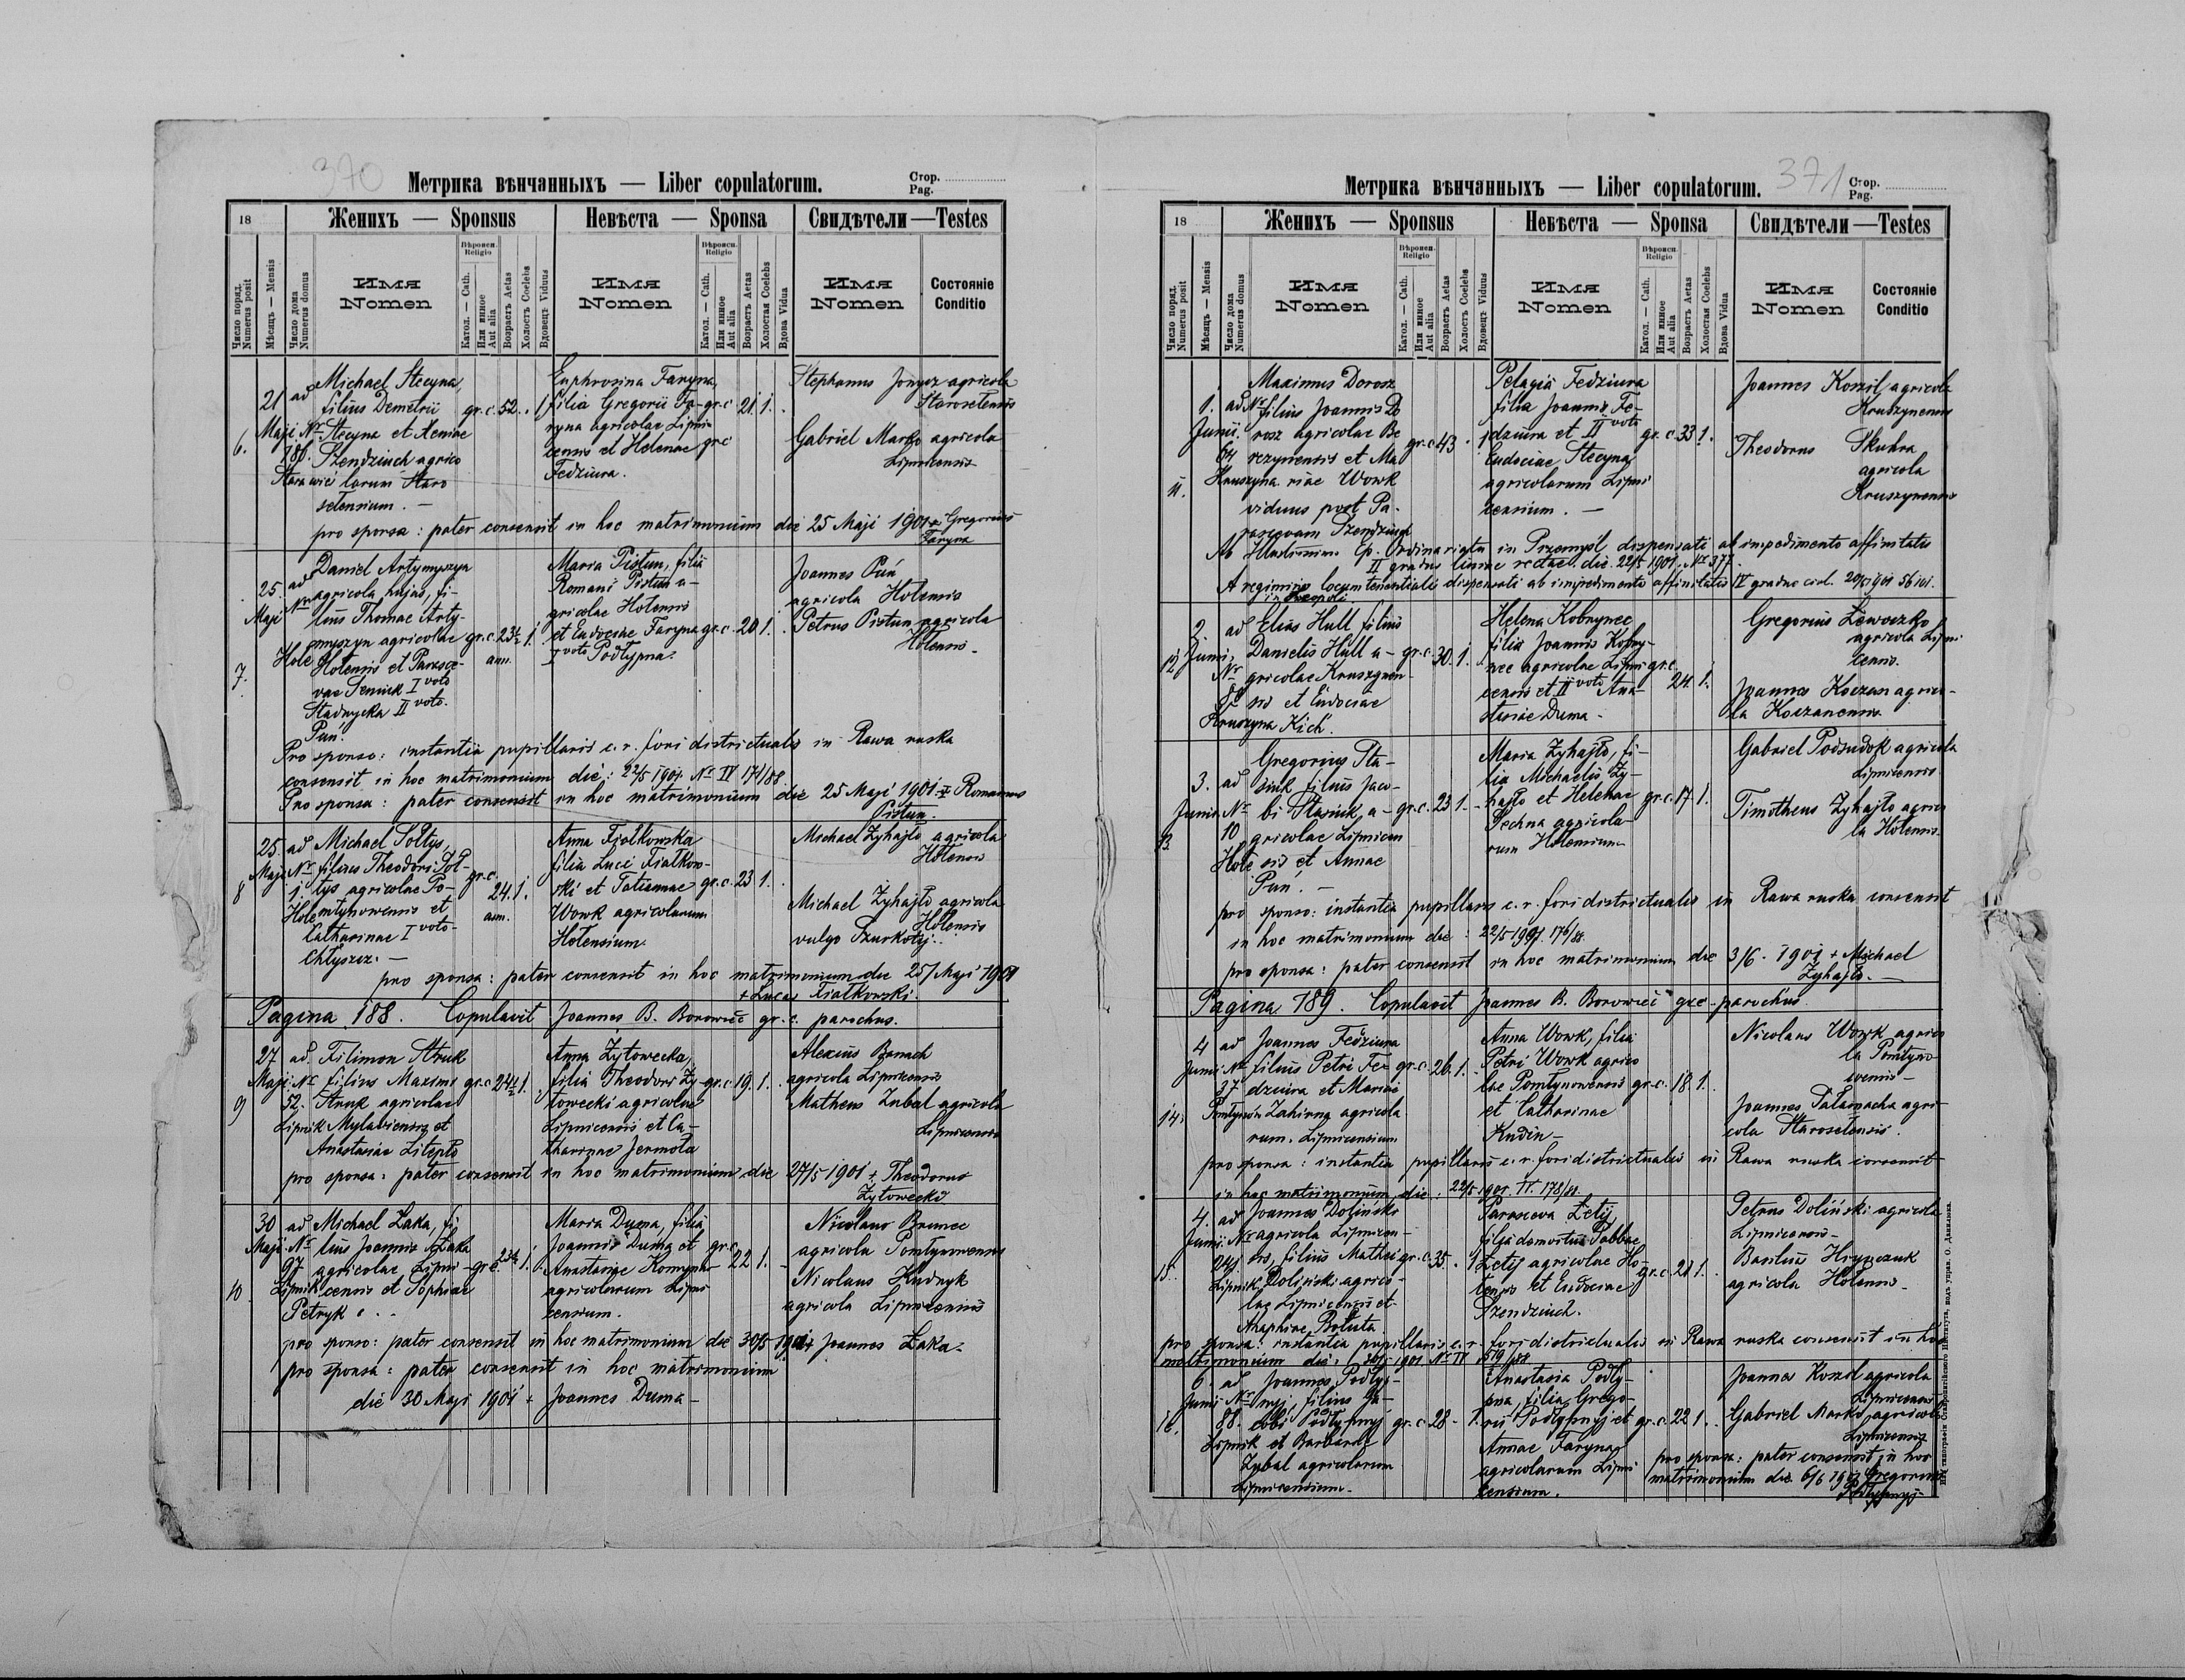 370
Метрика вѣнчанныхъ — Liber copulatorum.
Стор.
Pag.
18
Женихъ — Sponsus
Невѣста — Sponsa
Свидѣтели — Testes
Число поряд. Numerus posit
Мѣсяцъ — Mensis
Число дома Numerus domus
Имя Nomen
Вѣроисп. Religio
Катол. — Cath.
Или инное Aut alia
Возрастъ Aetas
Холостъ Coelebs
Вдовецъ Viduus
Имя Nomen
Вѣроисп. Religio
Катол. — Cath.
Или инное Aut alia
Возрастъ Aetas
Холостая Coelebs
Вдова Vidua
Имя Nomen
Состояніе Conditio
6.
21 Maji
ad Nr 186.
Michael Stecyna,
filius Demetrii
Stecyna et Xeniae
Szendziuch agrico
larum Staro
selensium. —
gr. c. 52. . 1
Euphrosina Faryna,
filia Gregorii Fa-
ryna agricolae Lipni
censis et Helenae
Fedziura.
gr. c. 21. 1. .
Stephanus agricola
Staroselensis
Gabriel Marko agricola
Lipnicensis
pro sponsa: pater consensit in hoc matrimonium die 25 Maji 1901 + Gregorius
Faryna
7.
25. Maji
ad Nr
Hole
Daniel Artymyszyn
agricola hujas, fi-
lius Thomae Arty-
myszyn agricolae
Holensis et Parasce-
vae Seniuk I voto
Stadnycka II voto.
Pań.
gr. c. 23½ 1.
ann.
Maria Pistun, filia
Romani Pistun a-
gricolae Holensis
et Eudociae Faryna
I voto Podłypna.
gr. c. 20 1. .
Joannes Pań
agricola Holensis
Petrus Pistun agricola
Holensis.
Pro sponso: instantia pupillaris c. r. fori districtualis in Rawa ruska
consensit in hoc matrimonium die: 22/5 1901. Nr IV 171/88.
Pro sponsa: pater consensit in hoc matrimonium die 25 Maji 1901 + Romanus
Pistun.
8
25. Maji
ad Nr 1
Hole
Michael Sołtys,
filius Theodori Soł-
tys agricolae Po-
młynowensis et
Catharinae I voto
Chłyszcz. —
gr. c. 24. 1.
ann.
Anna Fiałkowska
filia Luci Fiałkow-
ski et Tatiannae
Wowk agricolarum
Holensium.
gr. c. 23 1. .
Michael Zyhajło agricola
Holensis
Michael Zyhajło agricola
Holensis
vulgo Szurkotyj.
pro sponsa: pater consensit in hoc matrimonium die 25/Maji 1901
+ Lucas Fiałkowski.
Pagina 188. Copulavit Joannes B. Borowiec gr. c. parochus.
9
27 Maji
ad Nr 52.
Lipnik
Filimon Struk
filius Maximi
Struk agricolae
Mylaviensis et
Anastasiae Litepło
gr. c. 24½ 1.
Anna Żytowecka,
filia Theodori Ży-
towecki agricolae
Lipnicensis et Ca-
tharinae Jermoła
gr. c. 19. 1. .
Alexius Banach
agricola Lipnicensis
Matheus Zubal agricola
Lipnicensis
pro sponsa: pater consensit in hoc matrimonium die 27/5 1901 + Theodorus
Żytowecki
10
30 Maji
ad Nr 97
Lipnik
Michael Łaka, fi-
lius Joannis Łaka
agricolae Lipni-
censis et Sophiae
Petryk . . .
gr. c. 23½ 1.
Maria Duma, filia
Joannis Duma et
Anastasiae
agricolarum Lipni
censium.
gr. c. 22 1. .
Nicolaus Brunec
agricola Pomłynowensis
Nicolaus Kudryk
agricola Lipnicensis
pro sponso: pater consensit in hoc matrimonium die 30/5 1901 + Joannes Łaka.
pro sponsa: pater consensit in hoc matrimonium
die 30 Maji 1901 + Joannes Duma —
371
Метрика вѣнчанныхъ — Liber copulatorum.
Стор.
Pag.
18
Женихъ — Sponsus
Невѣста — Sponsa
Свидѣтели — Testes
Число поряд. Numerus posit
Мѣсяцъ — Mensis
Число дома Numerus domus
Имя Nomen
Вѣроисп. Religio
Катол. — Cath.
Или инное Aut alia
Возрастъ Aetas
Холостъ Coelebs
Вдовецъ Viduus
Имя Nomen
Вѣроисп. Religio
Катол. — Cath.
Или инное Aut alia
Возрастъ Aetas
Холостая Coelebs
Вдова Vidua
Имя Nomen
Состояніе Conditio
11.
1. Junii.
ad Nr 64
Kruszyna
Maximus Dorosz
filius Joannis Do
rosz agricolae Be
rezynensis et Ma
riae Wowk
viduus post Pa-
rascevam Szendziuch
gr. c. 43 . 1
Pelagia Fedziura
filia Joannis Fe-
dziura et II voto
Eudociae Stecyna
agricolarum Lipni
censium. —
gr. c. 33 1.
Joannes Kozij agricola
Kruszynensis
Theodorus Skuhra
agricola
Kruszynensis
Ab Illustrissimo Ep. Ordinariatu in Przemyśl dispensati ab impedimento affinitatis
II gradus lineae rectae die 22/5 1901. Nr 377.
A regimine locumtenentiali dispensati ab impedimento affinitatis IV gradus civil. 20/5 1901 56101.
in Leopoli
12.
2 Junii,
ad Nr
Kruszyna
Elias Hull filius
Danielis Hull a-
gricolae Kruszynen-
sis et Eudociae
Kich.
gr. c. 30. 1.
Helena Kobrynec
filia Joannis Kobry-
nec agricolae Lipni
censis et II voto Ana-
stasiae Duma —
gr. c. 24 1.
Gregorius Lewoczko
agricola Lipni
censis.
Joannes Koczan agrico-
la Koczanensis
13.
3. Junii
ad Nr 10
Hole
Gregorius Sta-
siuk filius Jaco-
bi Stasiuk a-
gricolae Lipnicen
sis et Annae
Pań. —
gr. c. 23 1. -
Maria Zyhajło, fi-
lia Michaelis Zy-
hajło et Helenae
Sechna agricola-
rum Holensium
gr. c. 17 1.
Gabriel Podsudok agricola
Lipnicensis
Timotheus Zyhajło agrico
la Holensis.
pro sponso: instantia pupillaris c. r. fori districtualis in Rawa ruska consensit
in hoc matrimonium die: 22/5 1901. 176/88.
pro sponsa: pater consensit in hoc matrimonium die 3/6. 1901 + Michael
Zyhajło. —
Pagina 189. Copulavit Joannes B. Borowiec gr. c. parochus
14.
4 Junii
ad Nr 37
Pomłynów
Joannes Fedziura
filius Petri Fe-
dziura et Mariae
Zahirna agricola
rum Lipnicensium
gr. c. 26. 1.
Anna Wowk, filia
Petri Wowk agrico
lae Pomłynowensis
et Catharinae
Kudin —
gr. c. 18. 1.
Nicolaus Wowk agrico
la Pomłyno
wensis —
Joannes Pałamacha agri-
cola Staroselensis.
pro sponsa: instantia pupillaris c. r. fori districtualis in Rawa ruska consensit
in hoc matrimonium die: 22/5 1901. IV. 178/88.
15.
4. Junii.
ad Nr 24
Lipnik
Joannes Doliński
agricola Lipnicen-
sis, filius Mathei
Doliński agrico-
lae Lipnicensis et
Ahaphiae Bołuta
gr. c. 35. . 1
Parasceva Łetij
filia demortui Sabbae
Łetij agricolae Ho-
lensis et Eudociae
Szendziuch.
gr. c. 21 1.
Petrus Doliński agricola
Lipnicensis —
Basilius Hrynczuk
agricola Holensis —
pro sponsa: instantia pupillaris c. r. fori districtualis in Rawa ruska consensit in hoc
matrimonium die: 30/5 1901 Nr IV 179/88
16.
6. Junii
ad Nr 88.
Lipnik
Joannes Podłyp-
nyj, filius Ja-
cobi Podłypnyj
et Barbarae
Zubal agricolarum
Lipnicensium —
gr. c. 28 - 1.
Anastasia Podły-
pna, filia Grego-
rii Podłypnyj et
Annae Faryna
agricolarum Lipni
censium.
gr. c. 22 1. .
Joannes Kozij agricola
Lipnicensis
Gabriel Marko agricola
Lipnicensis
pro sponsa: pater consensit in hoc
matrimonium die 6/6 1901 Gregorius
Podłypnyj —